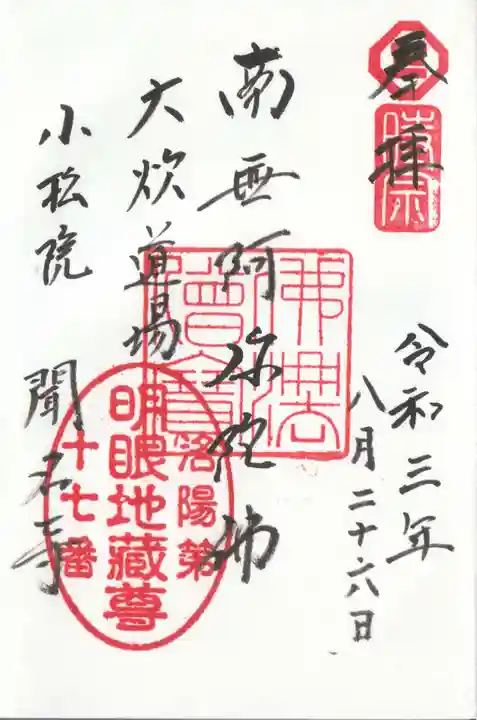 奉拝
令和三年
八月二十六日
南無阿弥陀佛
大炊道場
小松院 聞名寺
佛法僧寶
洛陽第
明眼地蔵尊
十七番